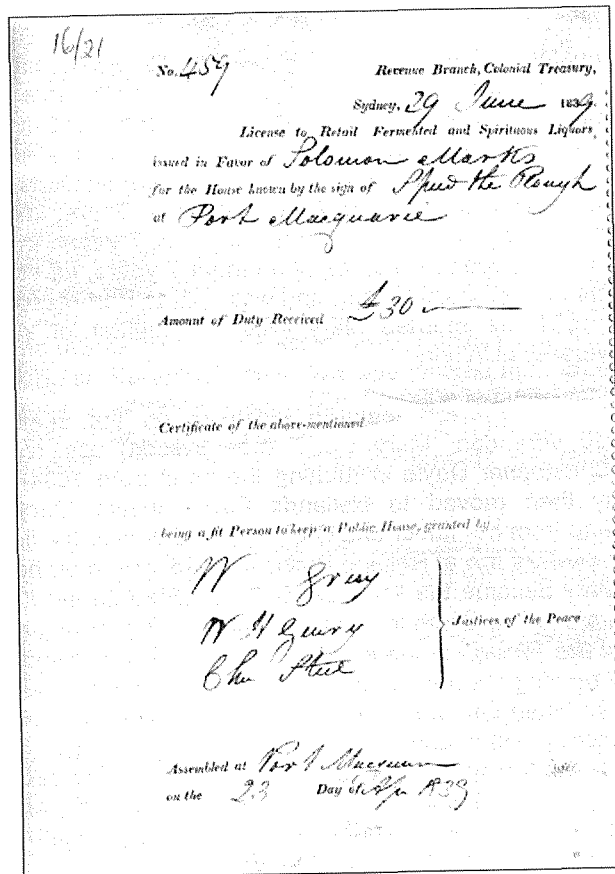 16/21
No. 459
Revenue Branch, Colonial Treasury,
Sydney, 29 June 1839.
License to Retail Fermented and Spirituous Liquors
issued in Favor of Solomon Marks
for the House known by the sign of Speed the Plough
at Port Macquarie
Amount of Duty Received £30
Certificate of the above-mentioned
being a fit Person to keep a Public House, granted by
W Gray
W H
Justices of the Peace
Assembled at Port Macquarie
on the 23 Day of Apr 1839